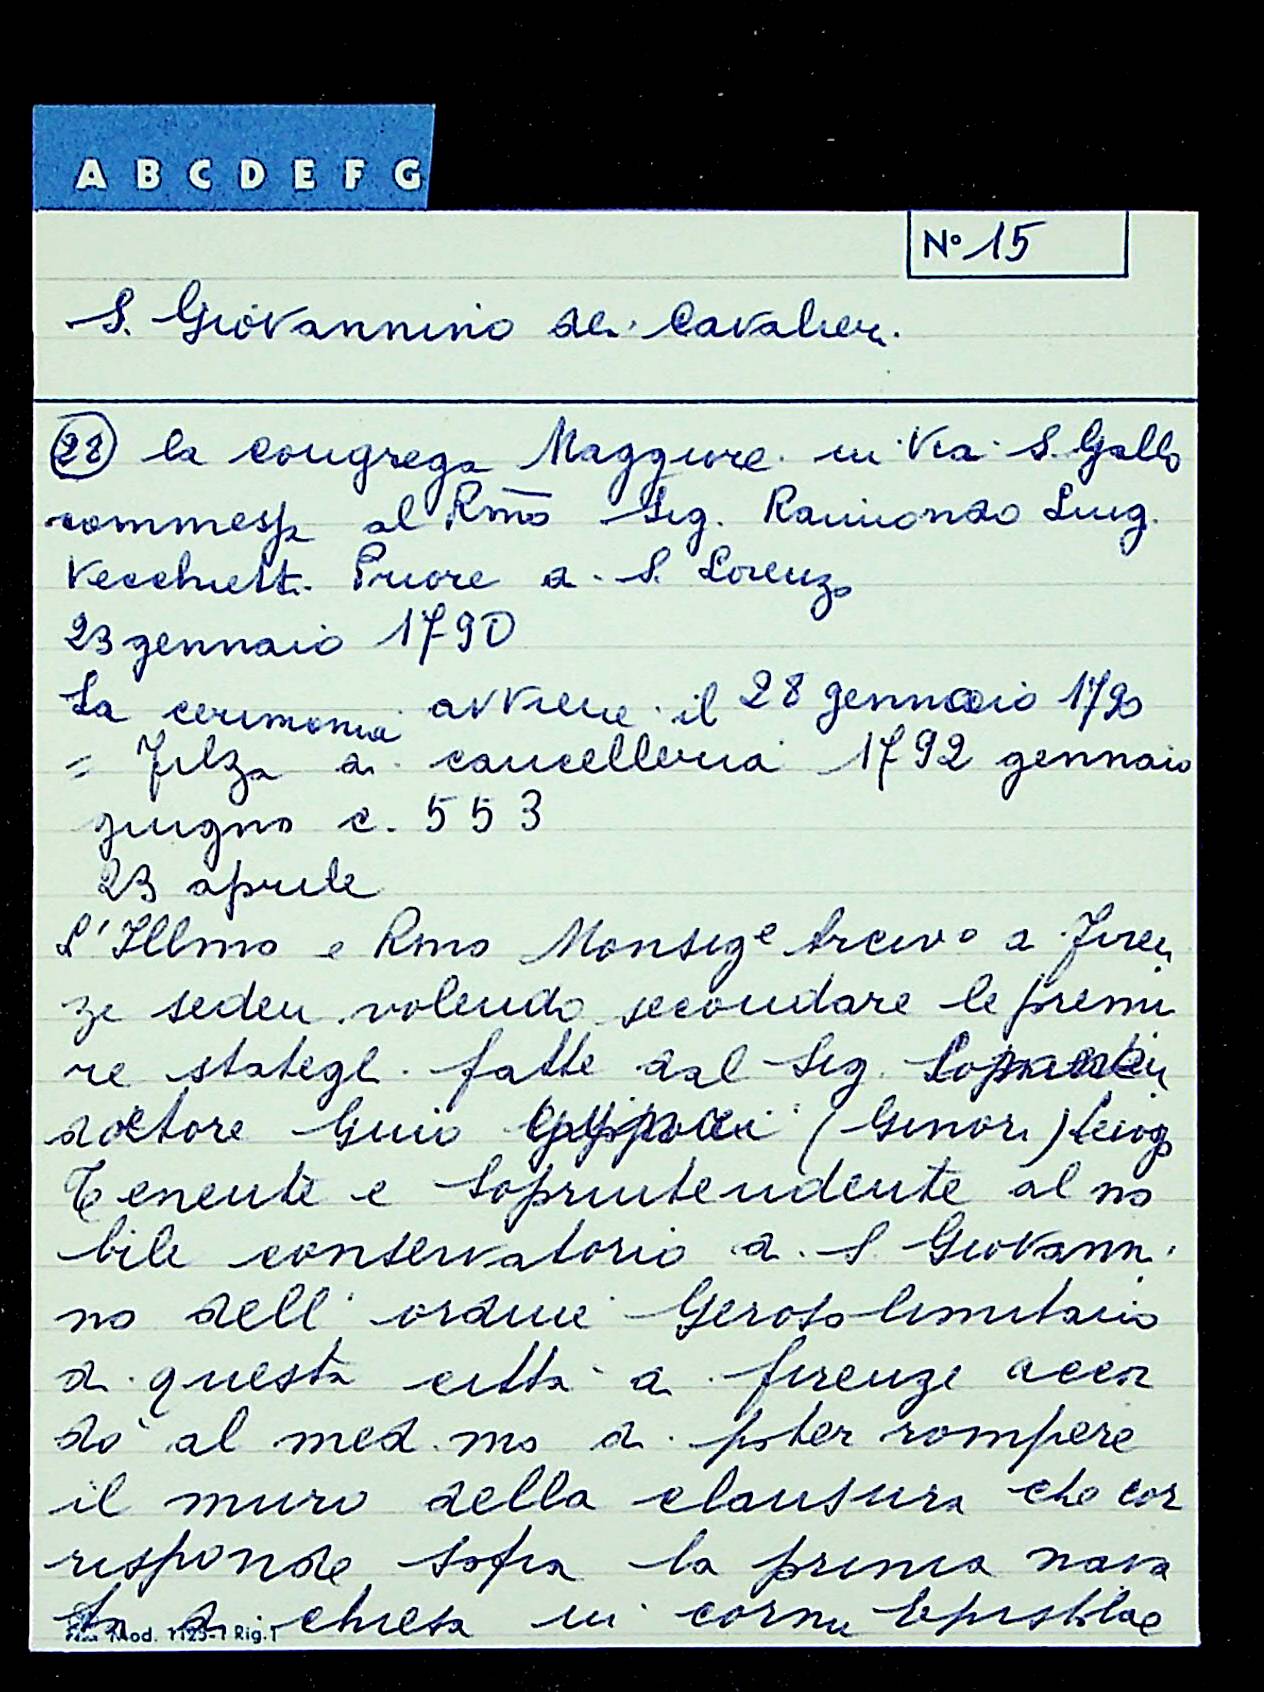 A B C D E F G
N° 15
S. Giovannino dei Cavalieri
22 la congrega Maggiore in Via S. Gallo
commessa al Rmo Sig. Raimondo Luig.
Vecchietti Priore di S. Lorenzo
23 gennaio 1790
La cerimonia avviene il 28 gennaio 1790
= Filza di cancelleria 1792 gennaio
giugno c. 553
23 aprile
L'Illmo e Rmo Monsigre Arcivo di Firen
ze seden volendo secondare le premu
re fatte dal Sig.
dottore (Ginori) Luog
Tenente e Soprintendente al no
bile conservatorio di S. Giovanni
no dell'ordine Gerosolimitano
di questa città di firenze accor
dò al med.mo di poter rompere
il muro della clausura che cor
risponde sopra la prima nava
ta di chiesa in cornu Epistolae
Mod. 1125-1 Rig. 1